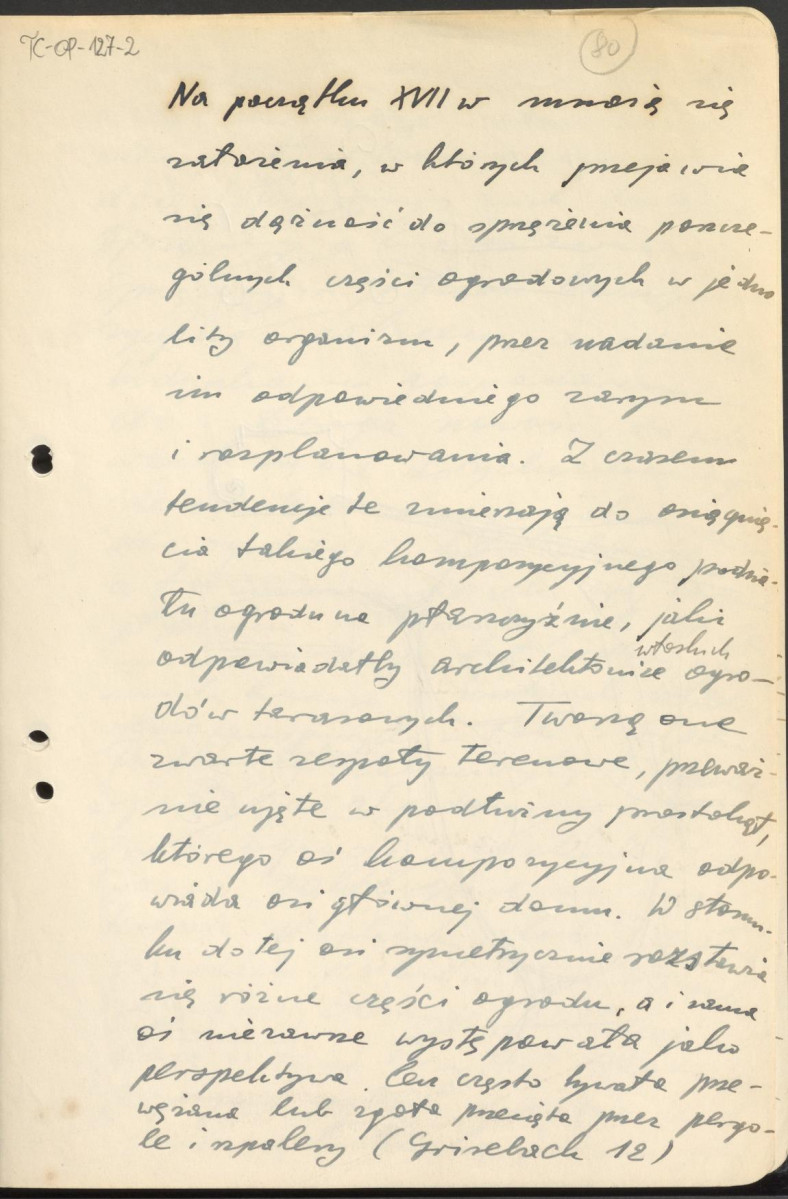 TC-OP-127-2
80
Na początku XVII w mnożą się
założenia, w których przejawia
się dążność do sprzężenia poszcze-
gólnych części ogrodowych w jedno
lity organizm, przez nadanie
im odpowiedniego zarysu
i rozplanowania. Z czasem
tendencje te zmierzają do osiągnię-
cia takiego kompozycyjnego podzia-
łu ogrodu na płaszczyźnie, jaki
włoskich
odpowiadałby architektonice ogro-
dów tarasowych. Tworzą one
zwarte zespoły terenowe, przeważ-
nie ujęte w podłużny prostokąt,
którego oś kompozycyjna odpo-
wiada osi głównej domu. W stosun-
ku do tej osi symetrycznie rozstawia
się różne części ogrodu, a i sama
oś niezawsze występowała jako
perspektywa. często bywała prze-
wężana lub zgoła przecięta przez pergo-
le i szpalery (Grisebach 12)